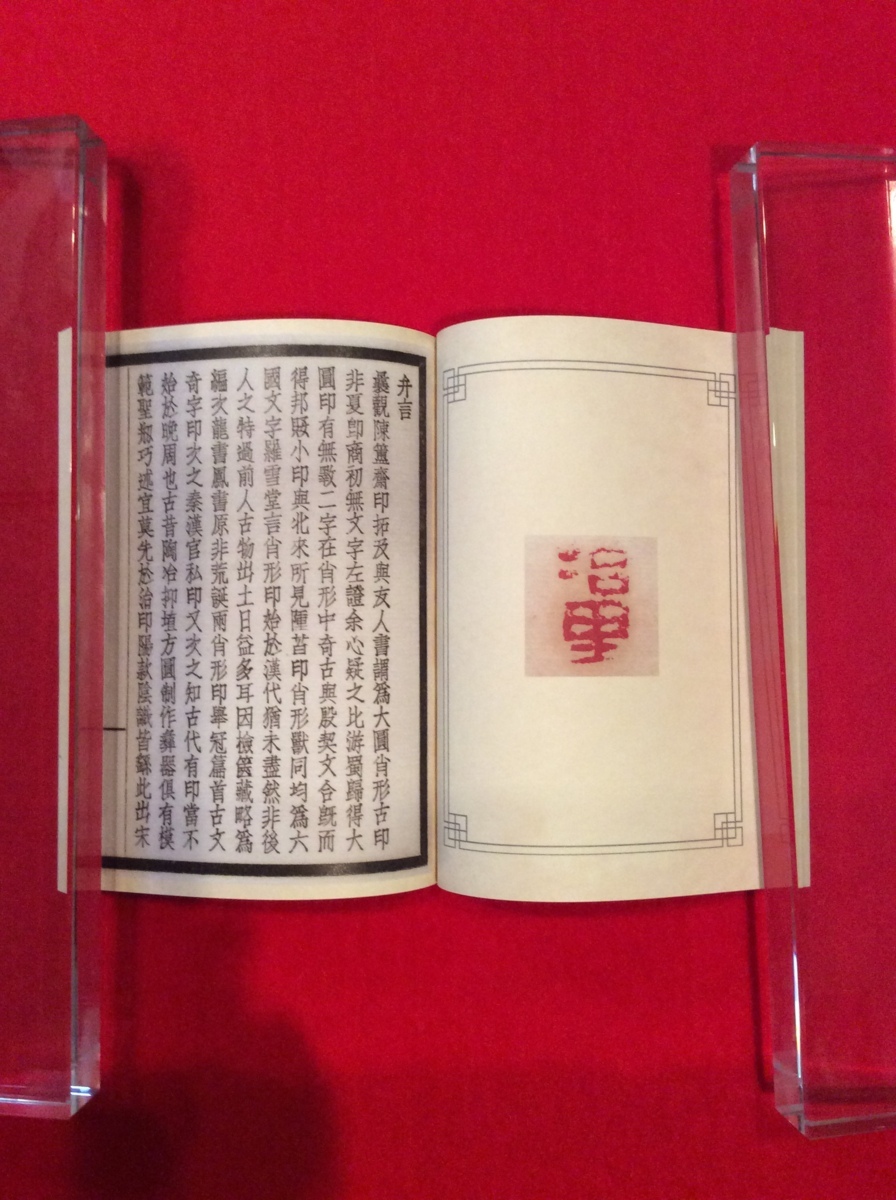 弁言
曩觀陳簠齋印拓及與友人書謂為大圓肖形古印
非夏卽商初無文字左證余心疑之比游蜀歸得大
圓印有無斁二字在肖形中奇古與殷契文合旣而
得邦𨸏小印與北來所見陲苩印肖形獸同均為六
國文字羅雪堂言肖形印始於漢代猶未盡然非後
人之特過前人古物出土日益多耳因檢篋藏略為
編次龍書鳳書原非荒誕兩肖形印舉冠篇首古文
奇字印次之秦漢官私印又次之知古代有印當不
始於晚周也古昔陶冶抑埴方圓制作彝器俱有模
範聖創巧述宜莫先於治印陽款陰識皆繇此出宋